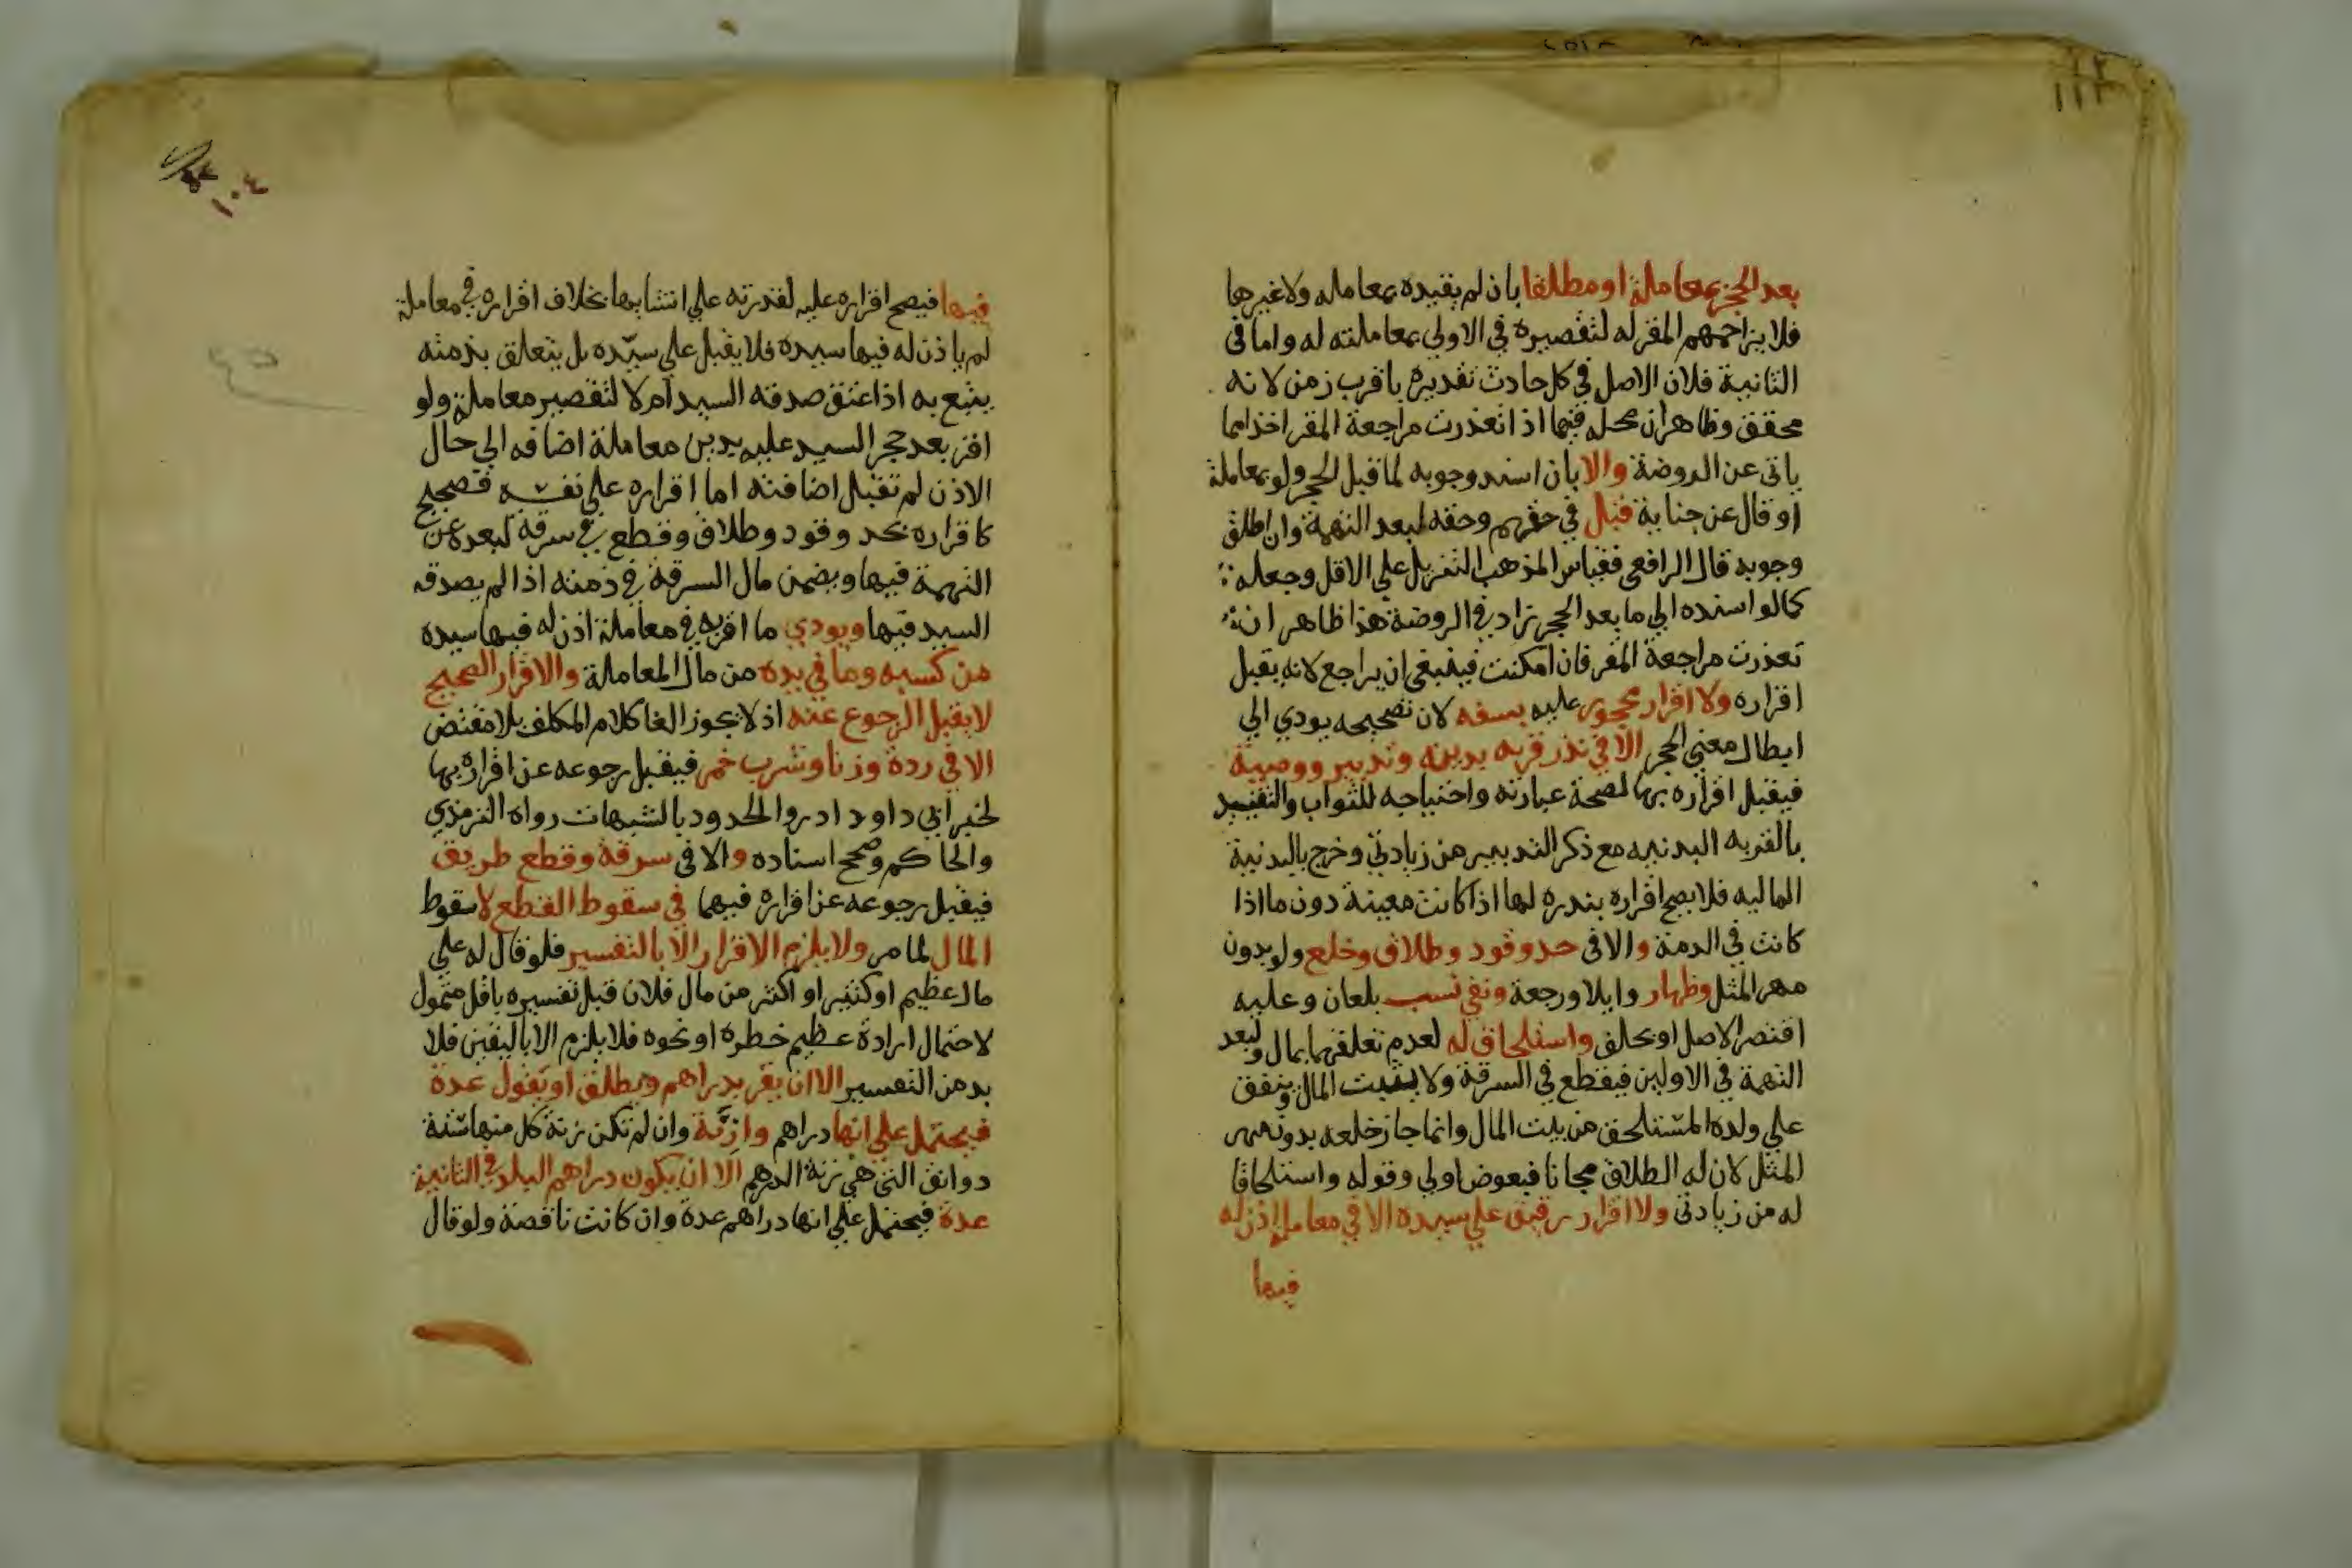 بعد الحجز بمعاملة او مطلقا بان لم يقيده بمعامله ولا غيرها
فلا يزاحمهم المقر له لتقصيره في الاولى بمعاملته له واما في
الثانية فلان الاصل في كل حادث تقديره باقرب زمن لانه
محقق وظاهر ان محله فيما اذا تعذرت مراجعة المقر اخذا مما
ياتي عن الروضة والا بان اسند وجوبه لما قبل الحجر ولو بمعاملة
او قال عن جناية قبل في حقهم وحقه لبعد التهمة وان اطلق
وجوبه قال الرافعي فقياس المذهب التنزيل على الاقل وجعله
كما لو اسنده الي ما بعد الحجر زاد في الروضة هذا ظاهر ان
تعذرت مراجعة المقر فان امكنت فينبغي ان يراجع لانه يقبل
اقراره ولا اقرار محجور عليه بسفه لان تصحيحه يودي الي
ابطال معني الحجر الا في نذر قربه بدينه وتدبير ووصية
فيقبل اقراره بها لصحة عبارته واحتياجه للثواب والتقييد
بالقربه البدنيه مع ذكر التدبير من زيادتي وخرج بالبدنية
الماليه فلا يصح اقراره بنذره لها اذا كانت معينة دون ما اذا
كانت في الذمة والا في حد وقود وطلاق وخلع ولو بدون
مهر المثل وظهار وايلا ورجعة ونفي نسب بلعان وعليه
اقتصر الاصل او بحلف واستلحاق له لعدم تعلقها بمال ولبعد
التهمة في الاولين فيقطع في السرقة ولا يثبت المال وينفق
علي ولده المستلحق من بيت المال وانما جاز خلعه بدون مهر
المثل لان له الطلاق مجانا فبعوض اولي وقوله واستلحاقا
له من زيادتي ولا اقرار رقيق علي سيده الا في معاملة اذن له
فيها
١٠٤
فيها فيصح اقراره عليه لقدرته علي انشايها بخلاف اقراره في معاملة
لم ياذن له فيها سيده فلا يقبل علي سيده بل يتعلق بذمته
يتبع به اذا عتق صدقه السيد ام لا لتقصير معاملة ولو
اقر بعد حجر السيد عليه بدين معاملة اضافه الي حال
الاذن لم تقبل اضافته اما اقراره علي نفسه فصحيح
كاقراره بحد وقود وطلاق وقطع في سرقة لبعده عن
التهمة فيها ويضمن مال السرقة في ذمته اذا لم يصدقه
السيد فيها ويودي ما اقر به في معاملة اذن له فيها سيده
من كسبه وما في يده من مال المعاملة والاقرار الصحيح
لا يقبل الرجوع عنه اذ لا يجوز الغا كلام المكلف بلا مقتض
الا في ردة وزنا وشرب خمر فيقبل رجوعه عن اقراره بها
لخبر ابي داود ادروا الحدود بالشبهات رواه الترمذي
والحاكم وصحح اسناده والا في سرقة وقطع طريق
فيقبل رجوعه عن اقراره فيهما في سقوط القطع لا سقوط
المال لما مر ولا يلزم الاقرار الا بالتفسير فلو قال له علي
مال عظيم او كثير او اكثر من مال فلان قبل تفسيره باقل متمول
لاحتمال ارادة عظيم خطره او نحوه فلا يلزم الا باليقين فلا
بد من التفسير الا ان يقر بدراهم ويطلق او يقول عدة
فيحتمل علي انها دراهم وازنة وان لم تكن زنة كل منها ستة
دوانق التي هي زنة الدرهم الا ان يكون دراهم البلد في الثانية
عدة فيحتمل علي انها دراهم عدة وان كانت ناقصة ولو قال